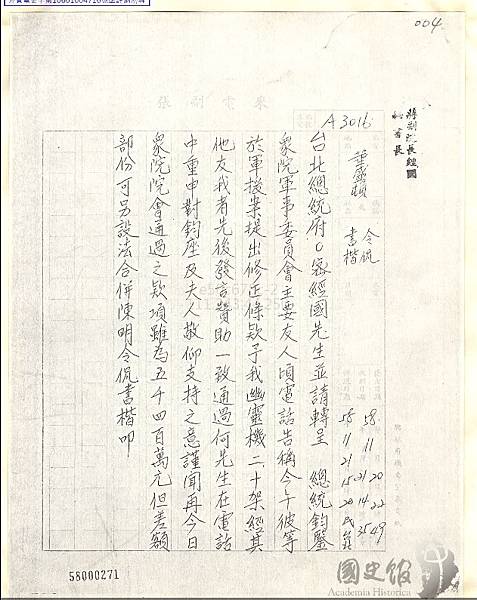 004
蔣副院長經國
秘書長
A3016
董盛頓
令侃
書楷
58 11 20 22 49
58 11 21 14 35
21 15 20
台北總統府○密經國先生並請轉呈　總統鈞鑒
衆院軍事委員會主要友人頃電話告稱今午彼等
於軍援案提出修正條款予我幽靈機二十架經其
他友我者先後發言贊助一致通過何先生在電話
中重申對鈞座及夫人敬仰支持之意謹聞再今日
衆院院會通過之款項雖為五千四百萬元但差額
部份可另設法合併陳明令侃書楷叩
來電副張
58000271
國史館
Academia Historica